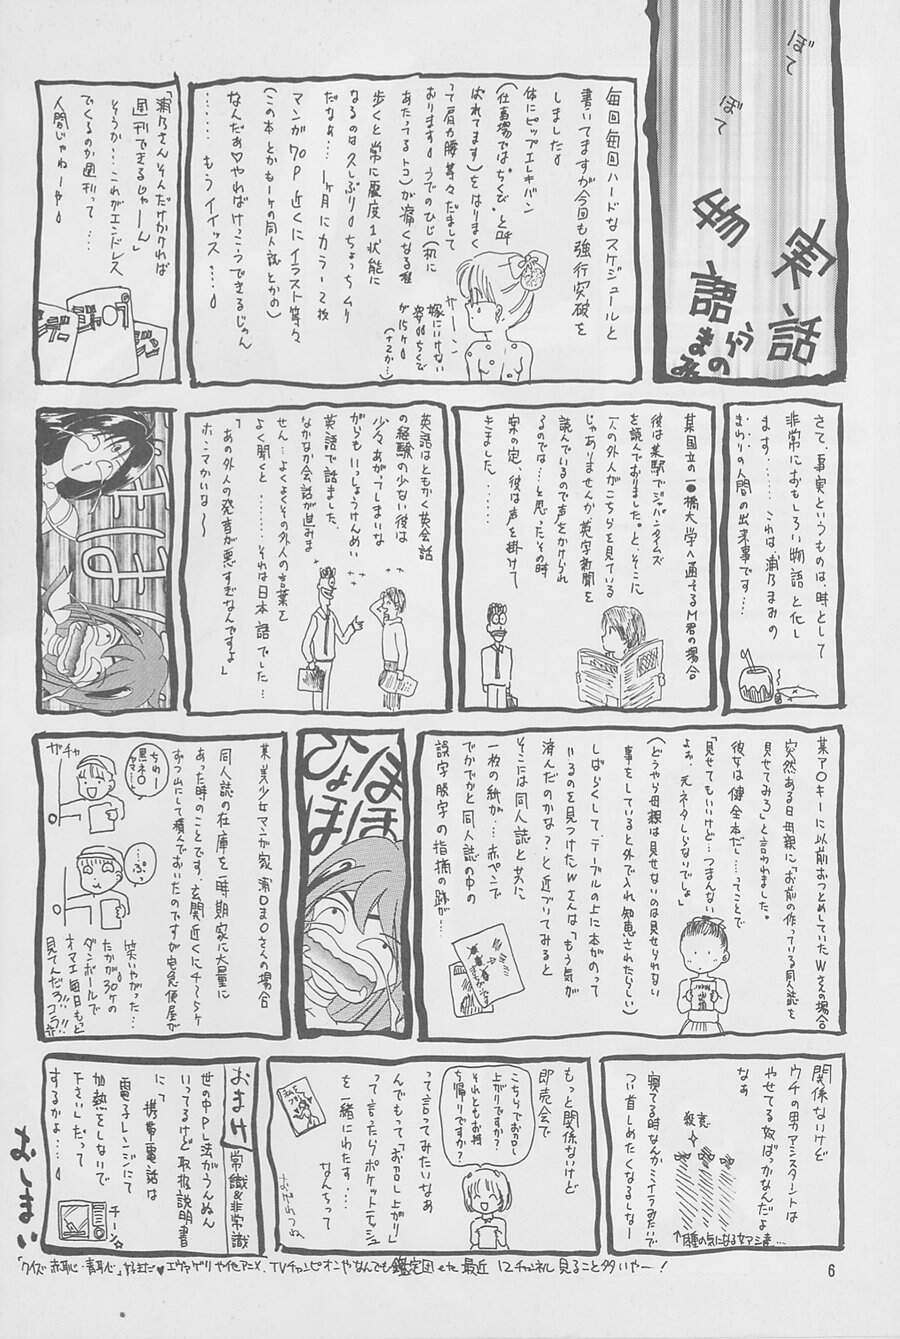 ぼて
ぼて
実話
物語
うらの
まみ
毎回毎回ハードなスケジュールと
書いてますが今回も強行突破を
しました
体にピップエレキバン
(仕事場では"ちくび"と呼
ばれてます)をはりまく
って肩力腰等々だまして
おります うでのひじ(机に
あたってるトコ)が痛くなる程
歩くと常に震度1状態に
なるのは久しぶり ちょっちムリ
だなぁ…。1ヶ月にカラー7枚
マンガ70P近くにイラスト等々
(この本とかもーけの同人誌とかの)
なんだぁ♡やればけっこうできるじゃん
………もうイイッス…。
サーーン
嫁にいけない
姿 ちくび
が15ケ
(+2か…)
「浦乃さんそんだけかければ
週刊できるじゃーん」
そうか…これがエンドレス
でくるのか週刊って…
人間じゃねーや
さて、事実というものは、時として
非常におもしろい物語と化し
ます………これは浦乃まみの
まわりの人間の出来事です…
某国立の一●橋大学へ通ってるM君の場合
彼は某駅でジャパンタイムズ
を読んでおりました。と、そこに
一人の外人がこちらを見ている
じゃありませんか 英字新聞を
読んでいるので声をかけられ
るのでは…と思ったその時
案の定、彼は声を掛けて
きました……
英語はともかく英会話
の経験の少ない彼は
少々あがってしまいな
がらもいっしょうけんめい
英語で話ました、
なかなか会話が進みま
せん…よくよくその外人の言葉を
よく聞くと……それは日本語でした…
「あの外人の発音が悪すぎなんですよ」
ホンマかいな〜
某アOキーに以前おつとめしていたWさんの場合
突然ある日母親に「お前の作っている同人誌を
見せてみろ」と言われました。
彼女は健全本だし…ってことで
「見せてもいいけど…つまんない
よぉ、元ネタしらないでしょ」
(どうやら母親は見せないのは見せられない
事をしていると外で入れ知恵されたらしい)
しばらくして、テーブルの上に本がのって
いるのを見つけたWさんは「もう気が
済んだのかな?」と近づいてみると
そこには同人誌と共に
一枚の紙が…赤ペンで
でかでかと同人誌の中の
誤字脱字の指摘の跡が…
ほほ
ひょほ
某・美少女マンガ家 浦Oま○さんの場合
同人誌の在庫を一時期家に大量に
あった時のことです、玄関近くに千〜5ヶ
ずつ山にして積んでおいたのですが宅急便屋が
ガチャ
ちわー
黒ネO
ヤマトー
…ぷ…
笑いやがった…
たかが30ケの
ダンボールで
オマエ毎日もっと
見てんだろ!!コラ!!
関係ないけど
ウチの男アシスタントは
やせてる奴ばっかなんだよ
なぁ
殺意
寝てる時なんかミイラみたいで
つい首しめたくなるしなー
もっと関係ないけど
即売会で
こちらでお召し
上がりですか?
それともお持
ち帰りですか?
って言ってみたいなぁ
んでもって「お召し上がり」
って言ったらポケットティッシュ
を一緒にわたす…
なんちって
おま け
常識&非常識
世の中PL法がうんぬん
いってるけど取扱説明書
に 携帯電話は
電子レンジにて
加熱をしないで
下さい、だって
するかよ…
チーン☆
おしまい
「クイズ赤恥・青恥」、やるまだ♥エヴァゲリやイセアニメ、TVチャンピオンやなんでも鑑定団etc最近12チャンネル見ること多いやー!
6